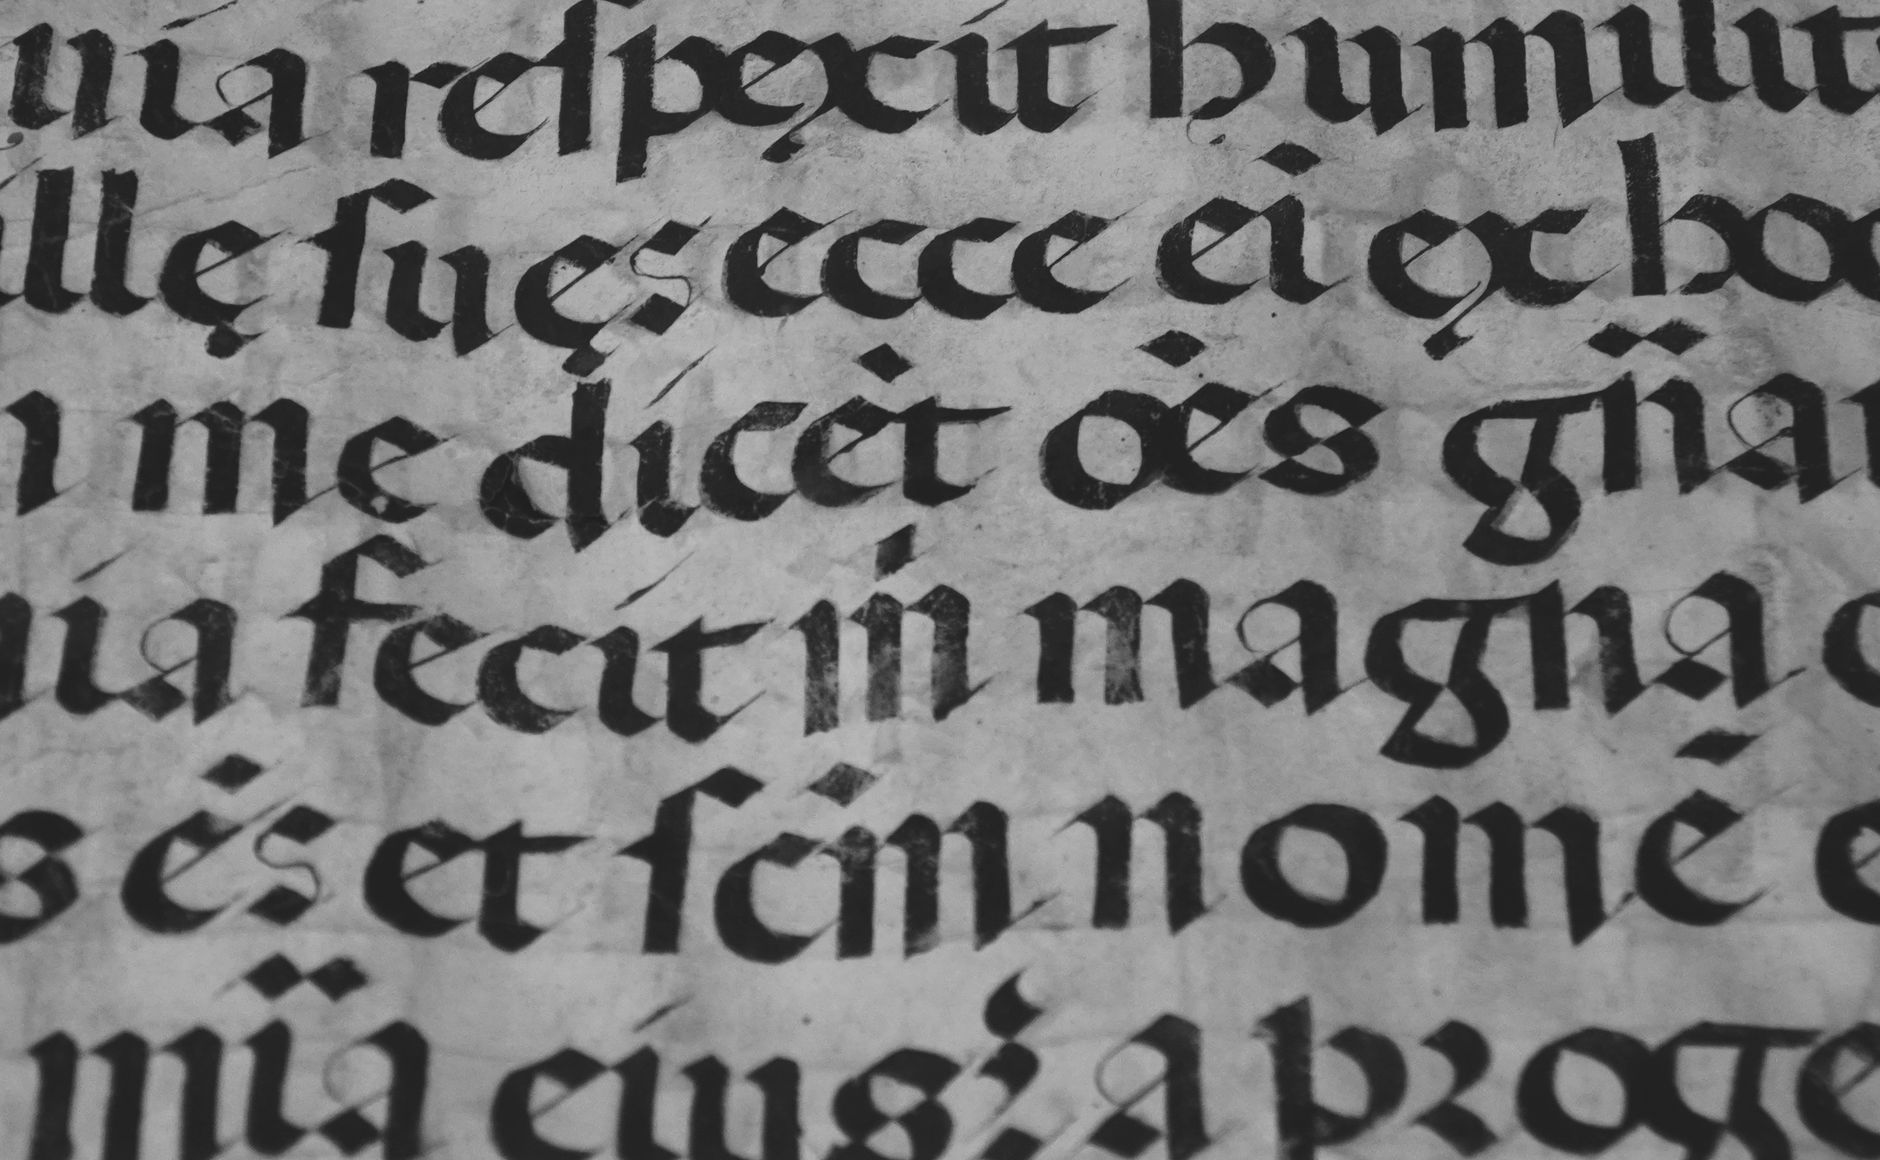 uia reſpęxit humilit
illę ſuęs ecce ei ęx hoc
i me dicėt oės gn̈a
uia fecit m̍ magna
s ės et ſcm̍ nomē e
mïa eius: a proge